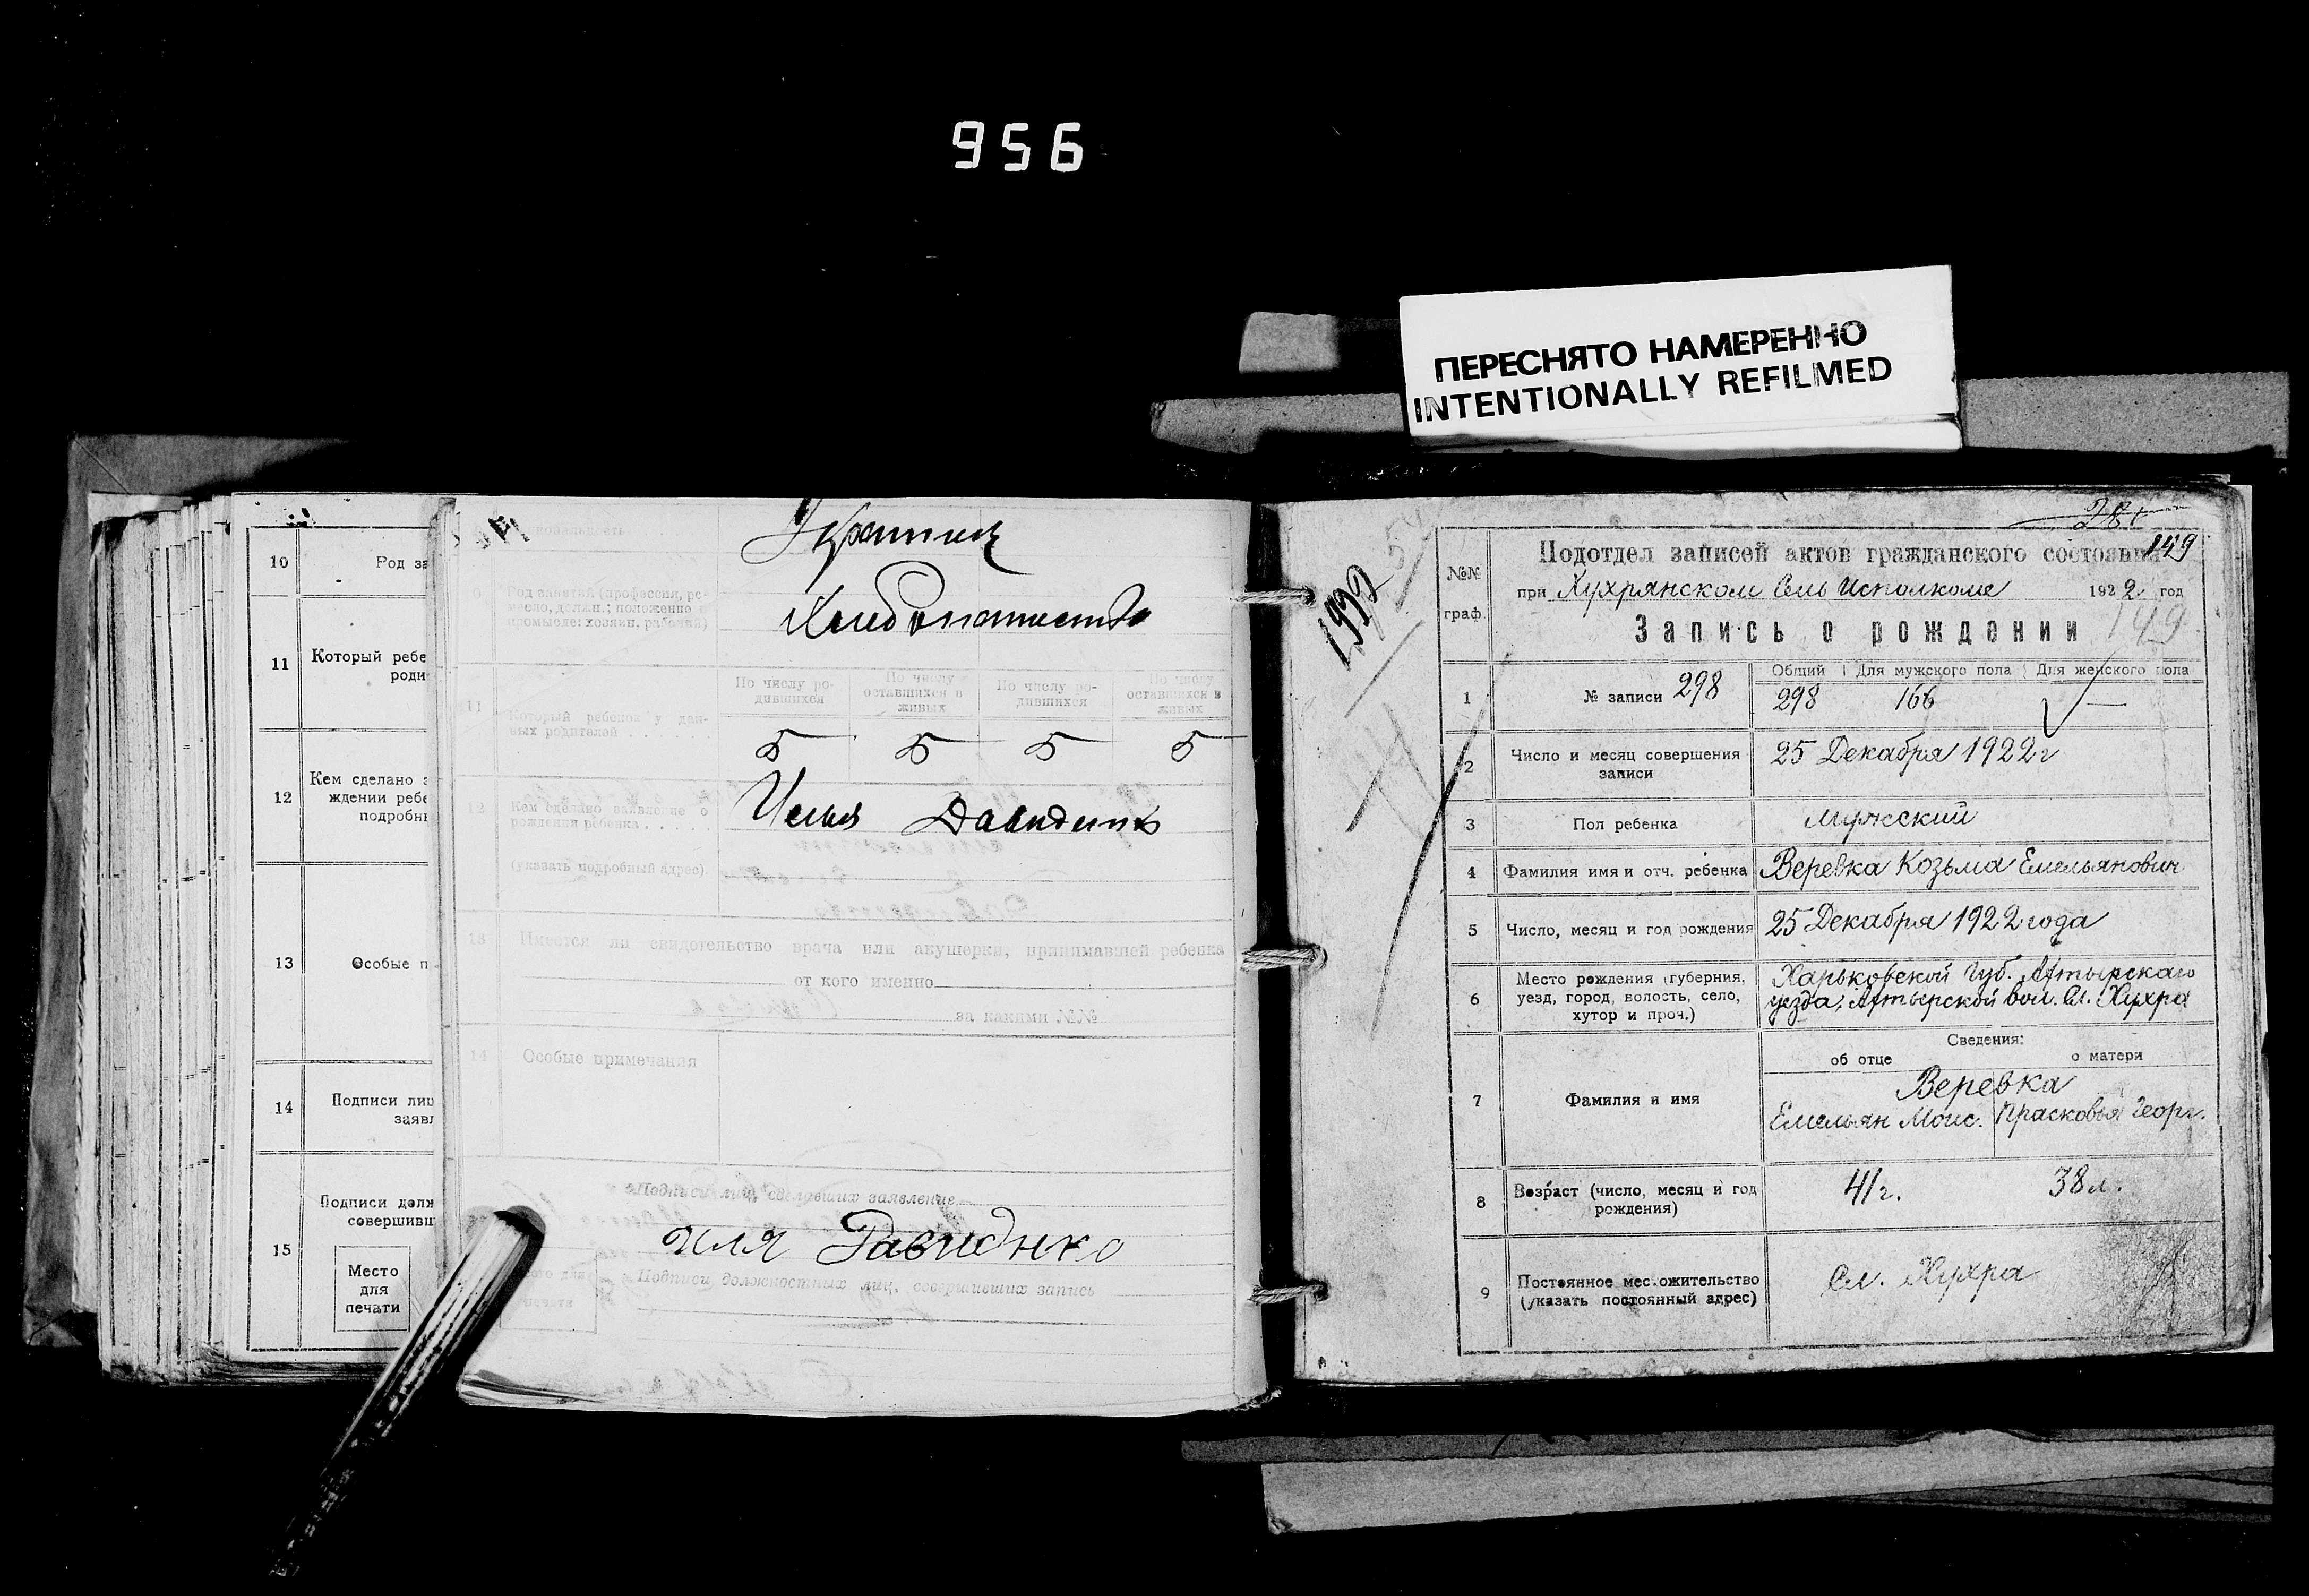 956
ПЕРЕСНЯТО НАМЕРЕННО
INTENTIONALLY REFILMED
10
Род за
11
Который ребе
роди
12
Кем сделано з
ждении ребе
подробнь
13
Особые п
14
Подписи лиц
заявл
15
Подписи долж
совершивш
Место
для
печати
Род занятий (профессия, ре-
месло, должн.; положение в
промысле: хозяин, рабочий)
11
Который ребенок у дан-
ных родителей
По числу ро-
дившихся
По числу
оставшихся в
живых
По числу ро-
дившихся
По числу
оставшихся в
живых
5 5 5 5
12
Кем сделано заявление о
рождении ребенка
(указать подробный адрес)
13
Имеется ли свидетельство врача или акушерки, принимавшей ребенка
от кого именно
за какими №№
14
Особые примечания
Подписи лиц, сделавших заявление
Иля Давиднко
Подписи должностных лиц, совершивших запись
1992
149
№№
граф.
Подотдел записей актов гражданского состояния
при Хухрянском Сель Исполкоме 1922 год
Запись о рождении 149
1
№ записи 298
Общий Для мужского пола Для женского пола
298 166 —
2
Число и месяц совершения
записи
25 Декабря 1922 г
3
Пол ребенка
Мужский
4
Фамилия имя и отч. ребенка
Веревка Козьма Емельянович
5
Число, месяц и год рождения
25 Декабря 1922 года
6
Место рождения (губерния,
уезд, город, волость, село,
хутор и проч.)
Харьковской Губ. Ахтырскаго
уезда, Ахтырской вол. Сл. Хухра
Сведения:
об отце о матери
7
Фамилия и имя
Веревка
Емельян Моис. Прасковья Георг.
8
Возраст (число, месяц и год
рождения)
41 г. 38 л.
9
Постоянное местожительство
(указать постоянный адрес)
Сл. Хухра